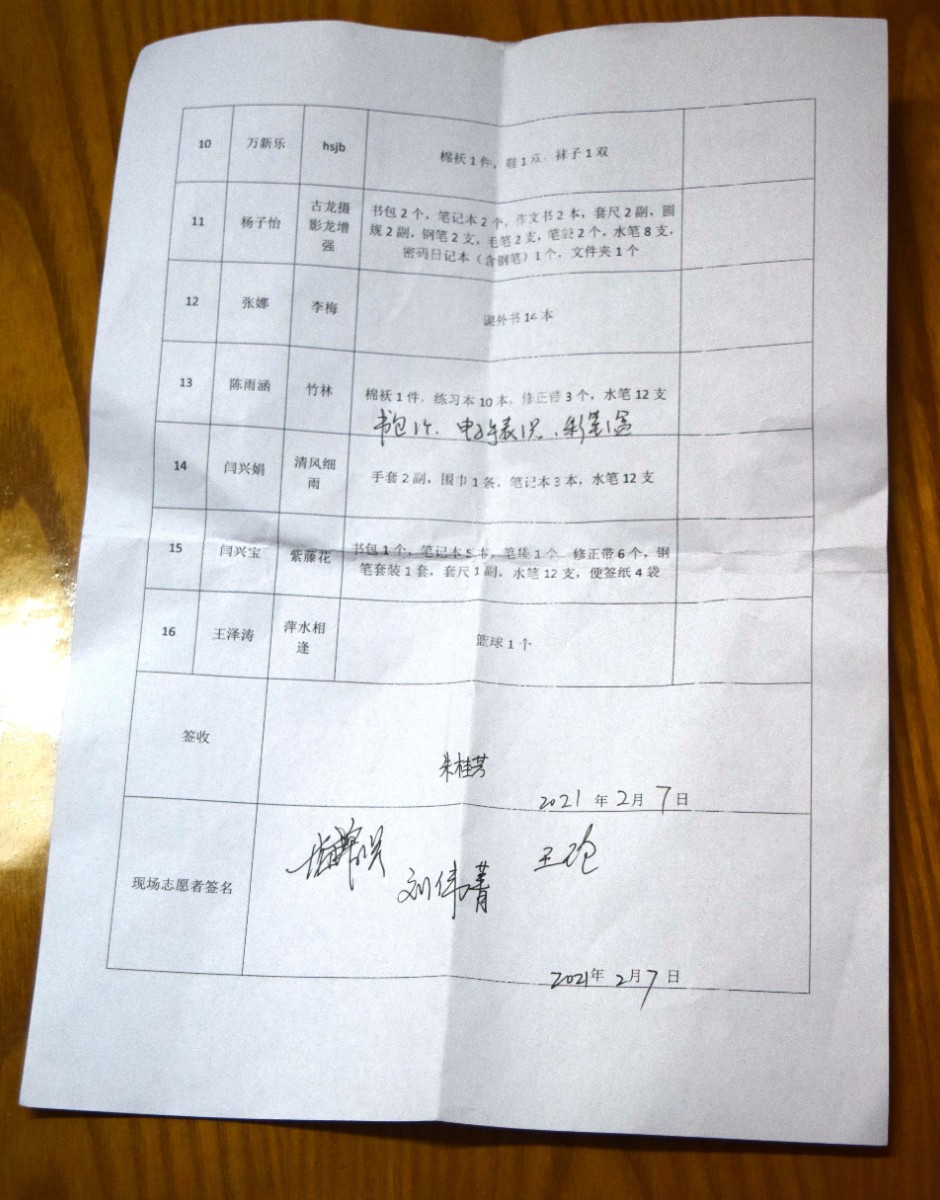 10 万新乐 hsjb 棉袄1件，鞋1双，袜子1双
11 杨子怡 古龙摄影龙增强 书包2个，笔记本2个，作文书2本，套尺2副，圆
规2副，钢笔2支，毛笔2支，笔袋2个，水笔8支，
密码日记本（含钢笔）1个，文件夹1个
12 张娜 李梅 课外书14本
13 陈雨涵 竹林 棉袄1件，练习本10本，修正带3个，水笔12支
书包1个、电子手表1只、彩笔1盒
14 闫兴娟 清风细雨 手套2副，围巾1条，笔记本3本，水笔12支
15 闫兴宝 紫藤花 书包1个，笔记本5本，笔袋1个，修正带6个，钢
笔套装1套，套尺1副，水笔12支，便签纸4袋
16 王泽涛 萍水相逢 篮球1个
签收
朱桂芳
2021年2月7日
现场志愿者签名
刘伟菁
2021年2月7日